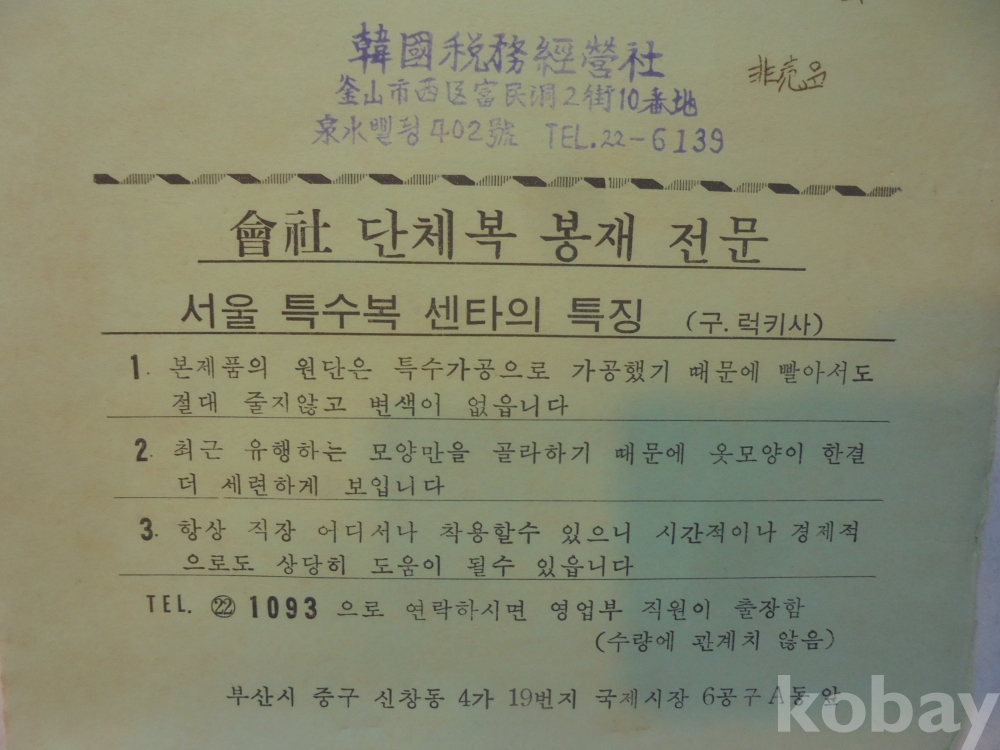 韓國税務經營社
釜山市西区富民洞2街10番地
泉水삘딍 402號 TEL.22-6139
非売品
會社 단체복 봉재 전문
서울 특수복 센타의 특징 (구.럭키사)
1. 본제품의 원단은 특수가공으로 가공했기 때문에 빨아서도
절대 줄지않고 변색이 없읍니다
2. 최근 유행하는 모양만을 골라하기 때문에 옷모양이 한결
더 세련하게 보입니다
3. 항상 직장 어디서나 착용할수 있으니 시간적이나 경제적
으로도 상당히 도움이 될수 있읍니다
TEL. ㉒ 1093 으로 연락하시면 영업부 직원이 출장함
(수량에 관계치 않음)
부산시 중구 신창동 4가 19번지 국제시장 6공구 A동 앞
kobay